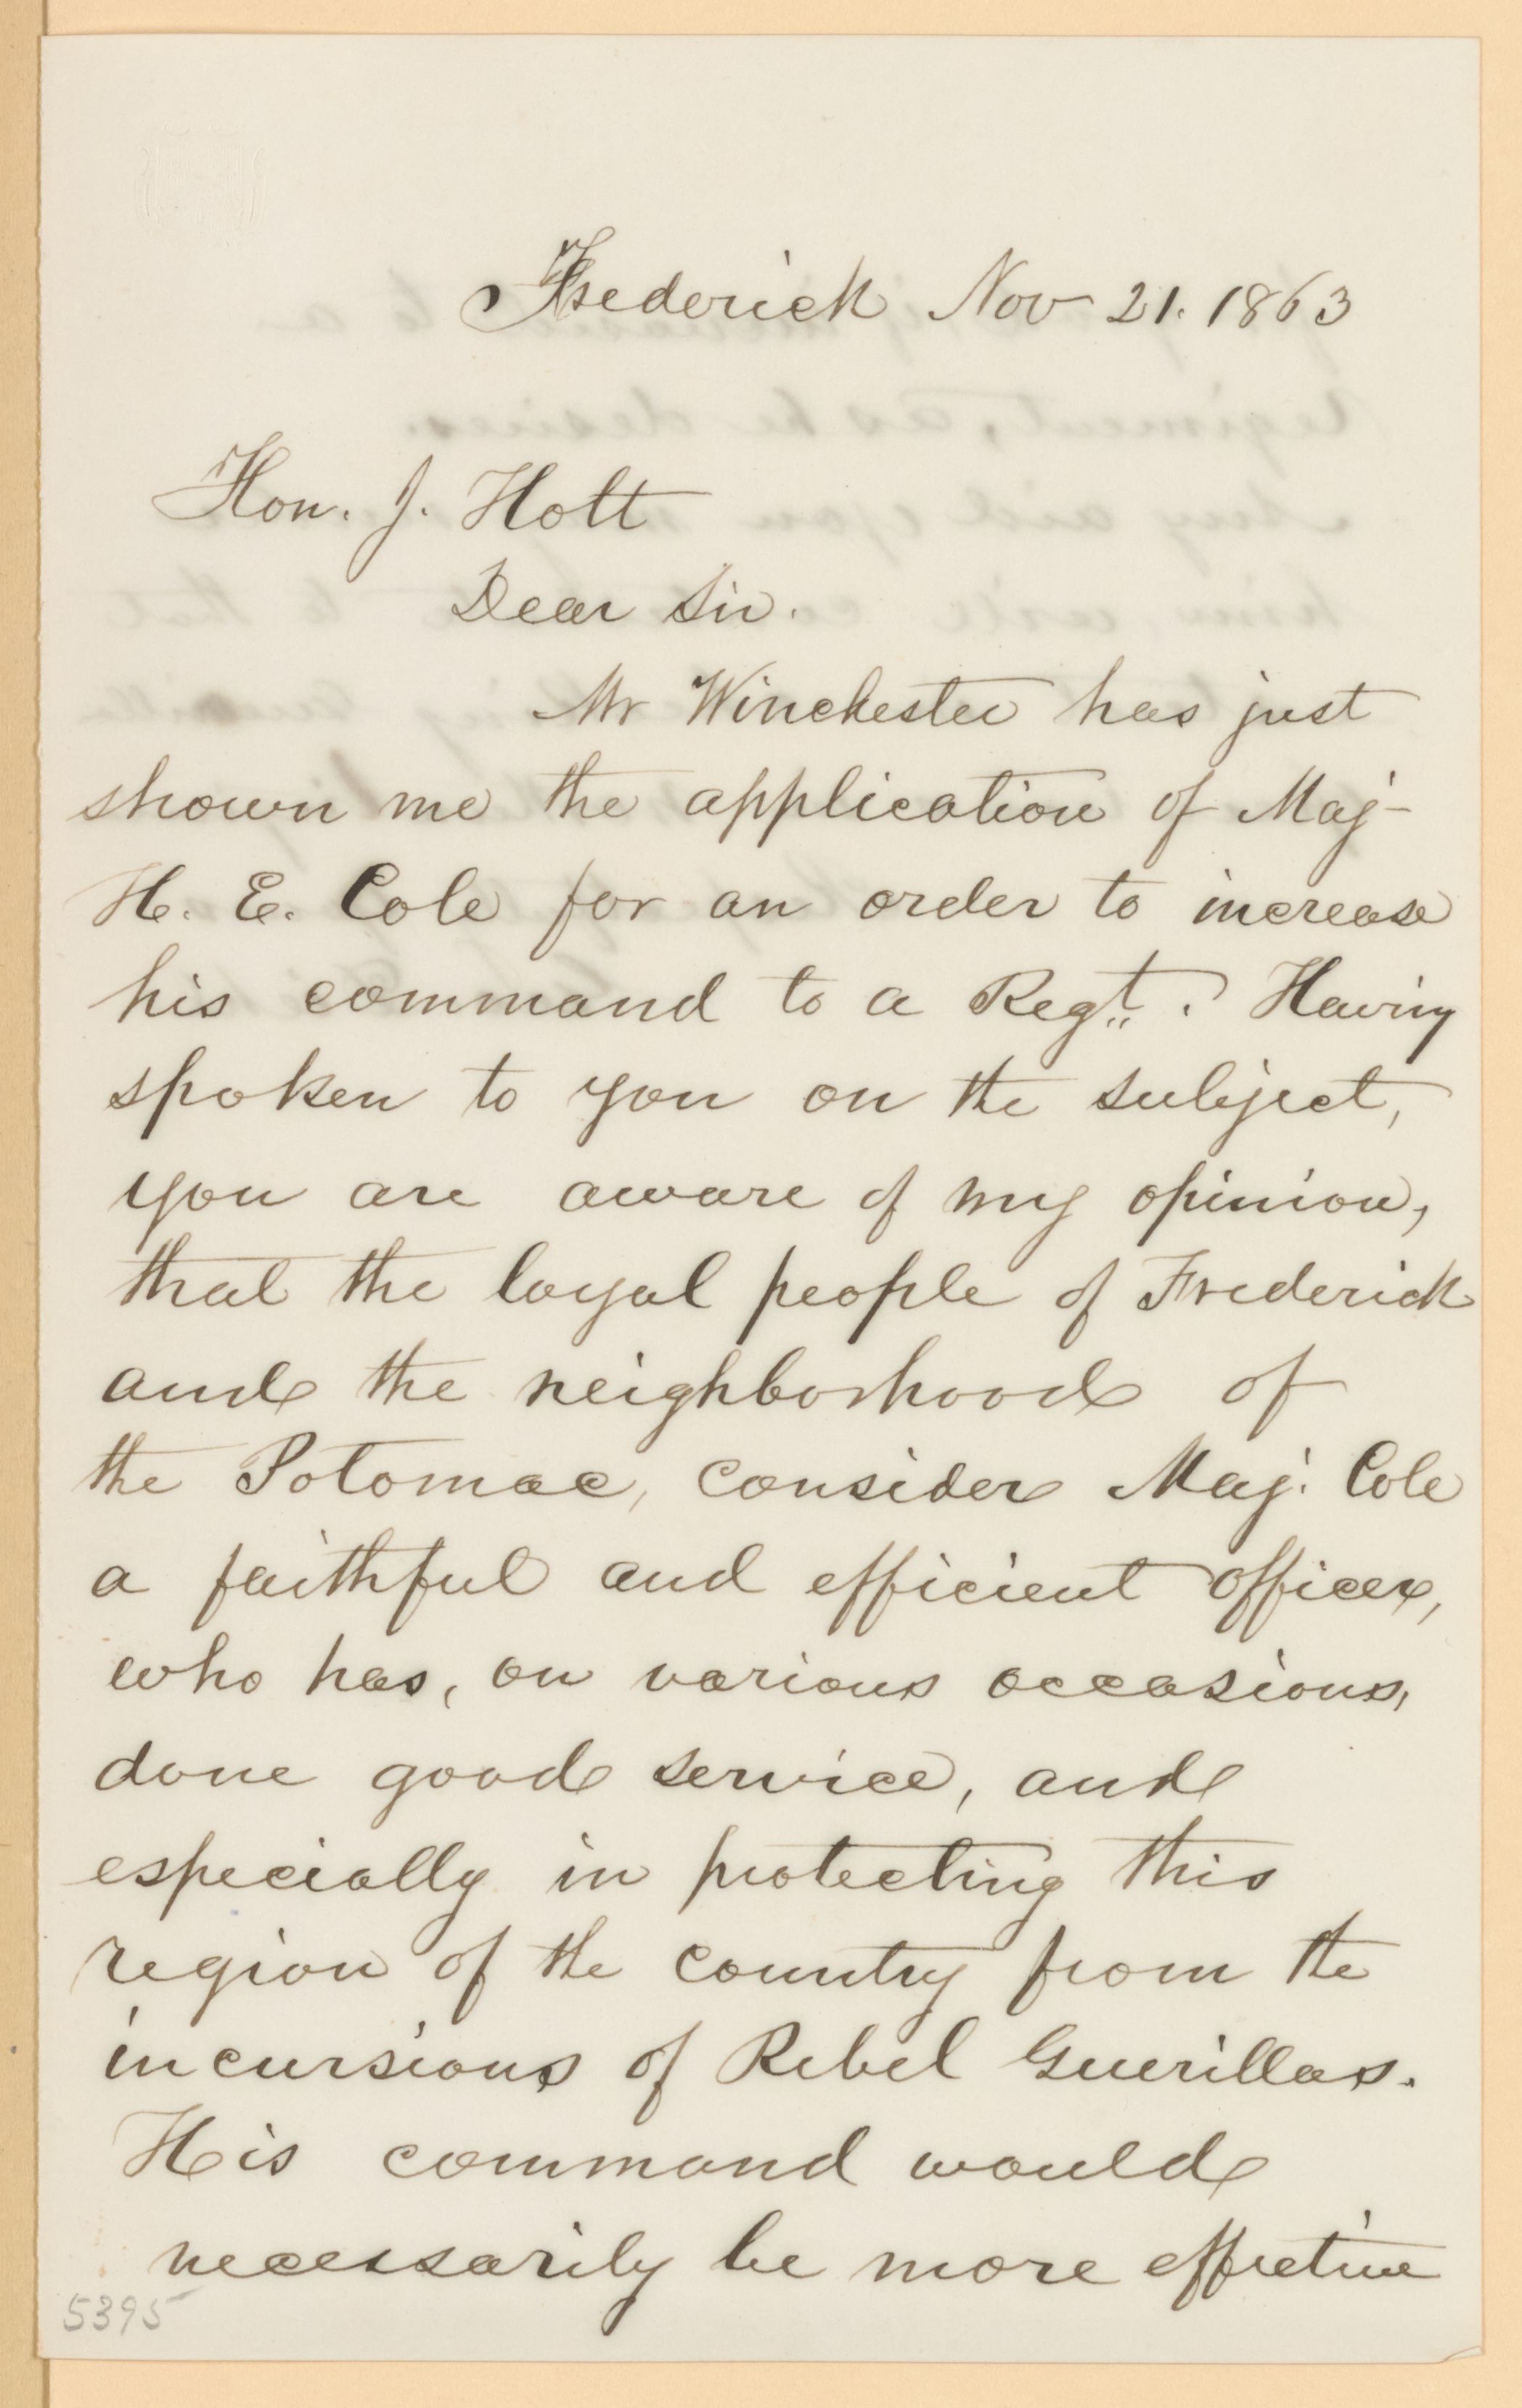 Frederick Nov 21. 1863
Hon. J. Holt
Dear Sir.
Mr Winchester has just
shown me the application of Maj-
H. E. Cole for an order to increase
his command to a Regt. Having
spoken to you on the subject,
you are aware of my opinion,
that the loyal people of Frederick
and the neighborhood of
the Potomac, consider Maj. Cole
a faithful and efficient officer,
who has, on various occasions,
done good service, and
especially in protecting this
region of the country from the
incursions of Rebel Guerillas.
His command would
necessarily be more effective
5395